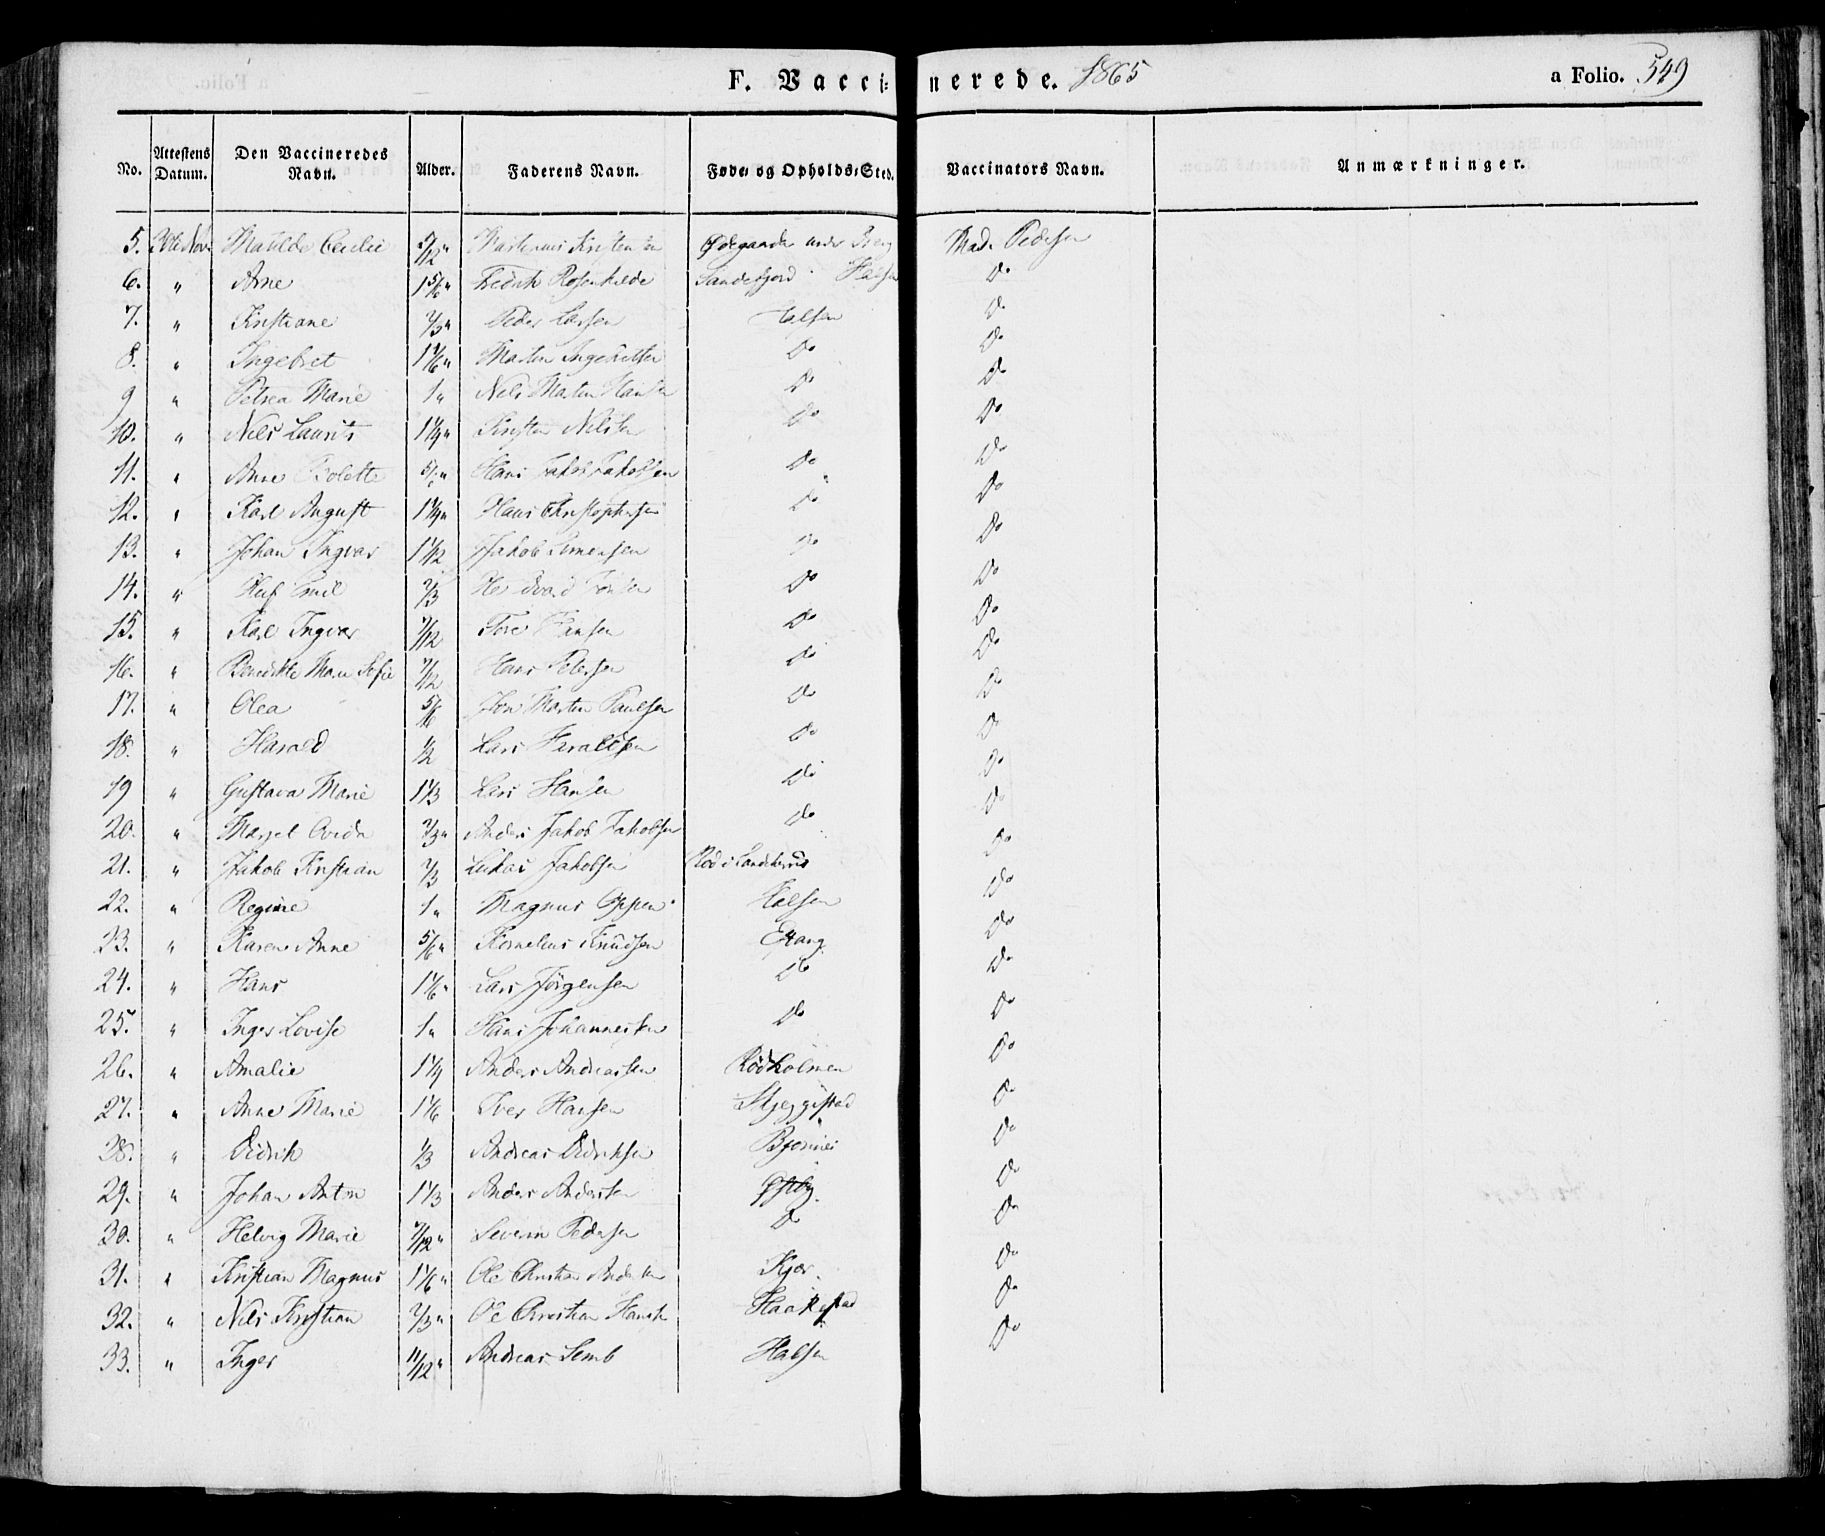 F. Vaccinerede. 1865
a Folio. 549
No. Attestens Datum. Den Vaccineredes Navn. Alder. Faderens Navn. Føde- og Opholds-Sted. Vaccinators Navn. Anmærkninger.
5. Nov. Matilde Cecilie 5/12" Kristensen Ødegaarden under Mad. Pedersen
6. " Arne 1 5/6" Fredrik Rosenkilde Sandefjord Halsen Do
7. " Kristiane 2/3" Peder Larsen Halsen Do
8. " Ingebret 1 1/6" Martin Ingebretsen Do Do
9 " Petrea Marie 1" Nils Martin Hansen Do Do
10. " Nils Laurits 1 1/4" Kristen Nilsen Do Do
11. " Anne Bolette Hans Jakob Jakobsen Do Do
12. " Karl August 1 1/4" Hans Christophersen Do Do
13. " Johan Ingvar 1 1/12 Jakob Simensen Do Do
14. " Emil 2/3 Do Do
15. " Karl Ingvar 7/12 Tore Hansen Do Do
16. " Benedikte Marie Sofie 7/12 Hans Petersen Do Do
17. " Olea 5/6 Jon Martin Paulsen Do Do
18. " Harald 1/2 Lars Haraldsen Do Do
19 " Gustava Marie 1 1/3 Lars Hansen Do Do
20. " 2/3" Anders Jakob Jakobsen Do Do
21. " Jakob Kristian 2/3 Lukas Jakobsen Rød i Do
22. " Regine 1" Magnus Oppen Halsen Do
23. " Karen Anne 5/6" Kornelius Knudsen Do
24. " Hans 1 1/6" Lars Jörgensen Do Do
25. " Inger Lovise 1" Hans Johannessen Do Do
26. " Amalie 1 1/4 Anders Andreassen Rødholmen Do
27. " Anne Marie 1 1/6 Iver Hansen Skjeggestad Do
28. " Didrik 1/3 Andreas Didriksen Bjørnes Do
29. " Johan Anton 1 1/3 Anders Andersen Østby. Do
30. " Helvig Marie 7/12" Severin Pedersen Do Do
31. " Kristian Magnus 1 1/6" Ole Christian Andersen Kjær. Do
32. " Nils Kristian 2/3" Ole Christian Hansen Haakestad Do
33. " Inger 11/12" Andreas Semb Halsen Do